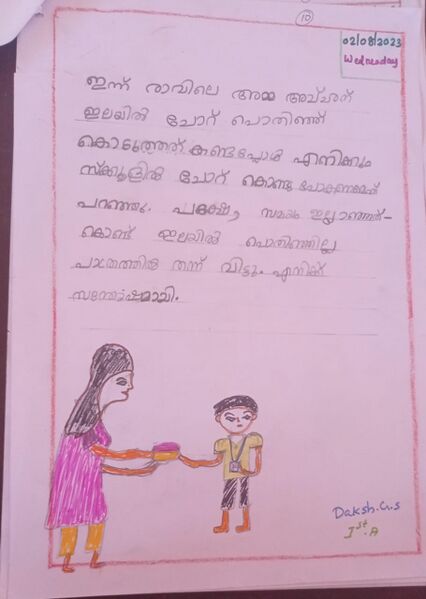 10
02/08/2023
Wednesday
ഇന്ന് രാവിലെ അമ്മ അച്ഛന്
ഇലയിൽ ചോറ് പൊതിഞ്ഞ്
കൊടുത്തത് കണ്ടപ്പോൾ എനിക്കും
സ്ക്കൂളിൽ ചോറ് കൊണ്ടു പോകണമെന്ന്
പറഞ്ഞു. പക്ഷേ, സമയം ഇല്ലാഞ്ഞത്-
കൊണ്ട് ഇലയിൽ പൊതിഞ്ഞില്ല
പാത്രത്തിൽ തന്ന് വിട്ടു. എനിക്ക്
സന്തോഷമായി.
Daksh.G.S
Ist-A